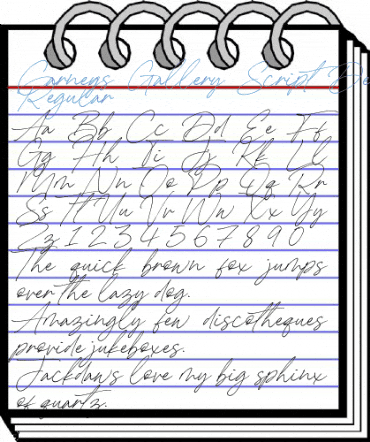 Garneys Gallery Script De
Regular
Aa Bb Cc Dd Ee Ff
Gg Hh Ii Jj Kk Ll
Mm Nn Oo Pp Qq Rr
Ss Tt Uu Vv Ww Xx Yy
Zz 1 2 3 4 5 6 7 8 9 0
The quick brown fox jumps
over the lazy dog.
Amazingly few discotheques
provide jukeboxes.
Jackdaws love my big sphinx
of quartz.